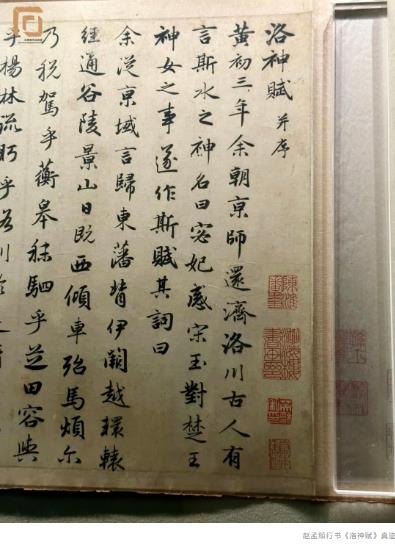 洛神賦 并序
黃初三年余朝京師還濟洛川古人有
言斯水之神名曰宓妃感宋玉對楚王
神女之事遂作斯賦其詞曰
余從京域言歸東藩背伊闕越轘轅
經通谷陵景山日既西傾車殆馬煩尒
乃稅駕乎蘅皋秣駟乎芝田容與
乎楊林流眄乎洛川於是
赵孟頫行书《洛神赋》真迹